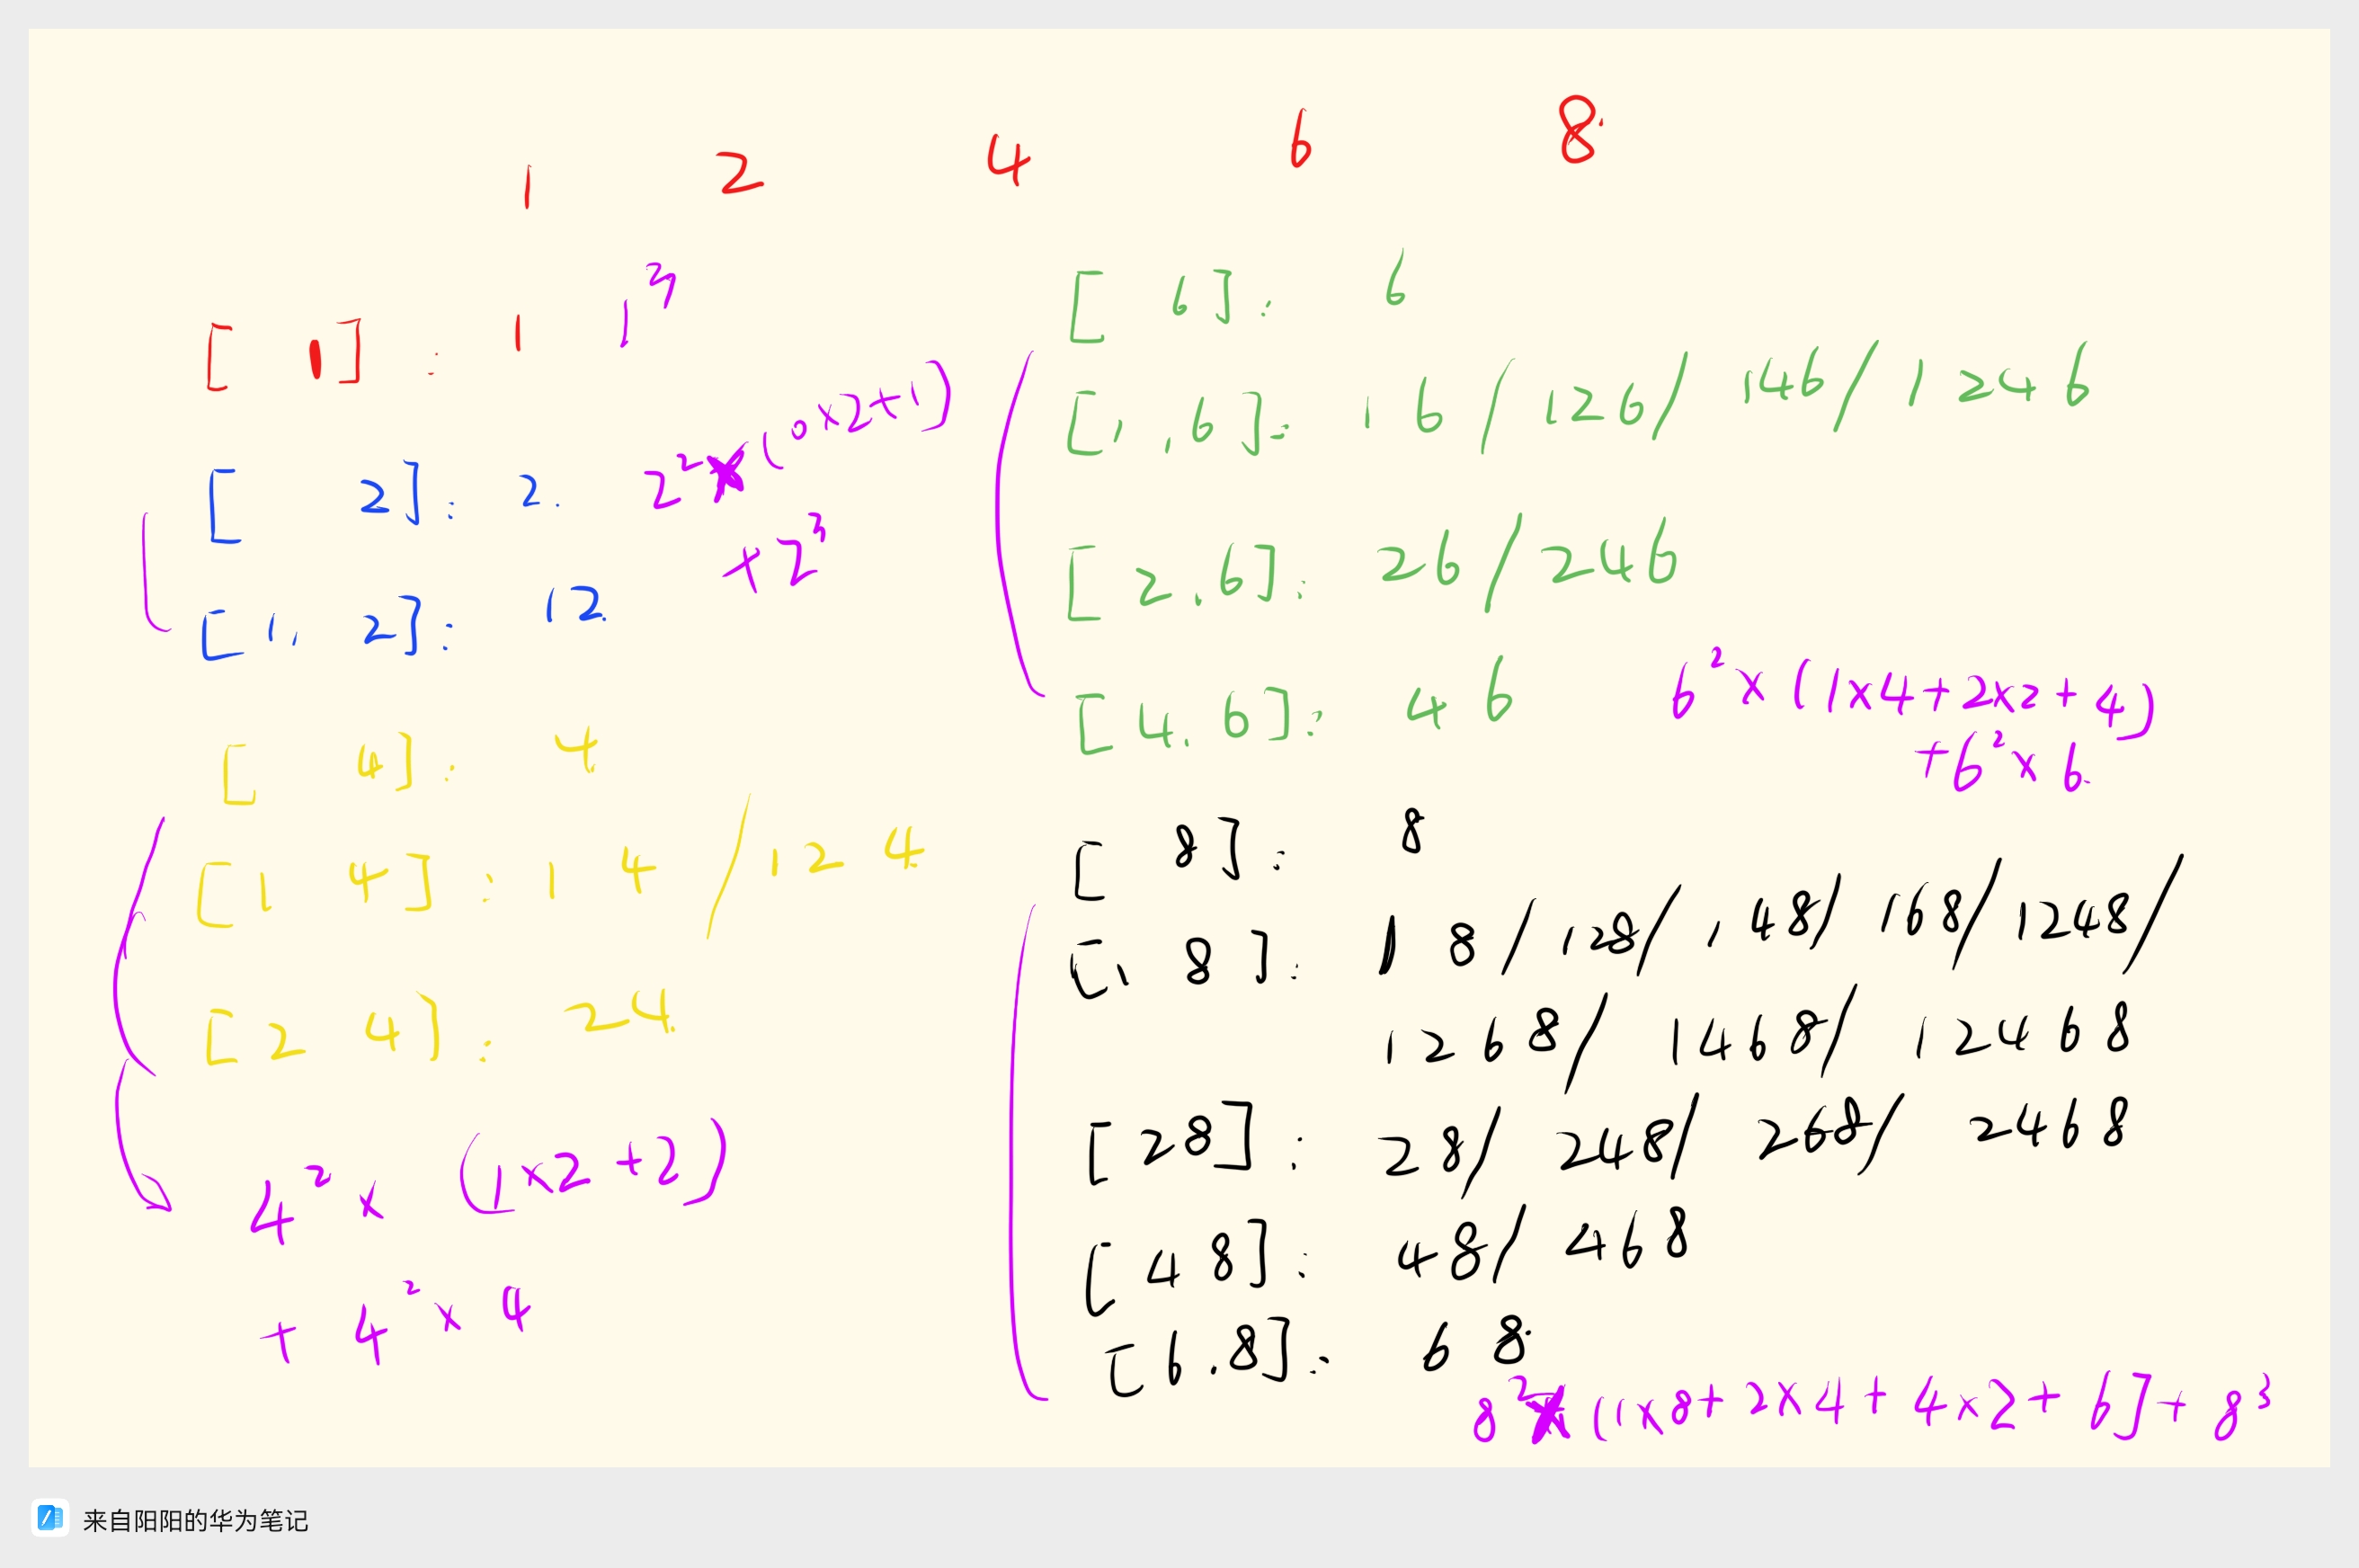 1 2 4 6 8.
[ 1] : 1 1³
[ 2] : 2. 2²×(0×2+1)
+2³
[1, 2] : 12.
[ 4] : 4
[1 4] : 14/124
[2 4] : 24.
4²× (1×2+2)
+ 4²×4
[ 6] : 6
[1,6] : 16/126/146/1246
[2,6] : 26/246
[4,6] : 46 6²×(1×4+2×2+4)
+6²×6.
[ 8] : 8
[1, 8] : 18/128/148/168/1248/
1268/1468/12468
[28] : 28/248/268/2468
[48] : 48/468
[6.8] : 68.
8²×(1×8+2×4+4×2+6]+8³
来自阳阳的华为笔记